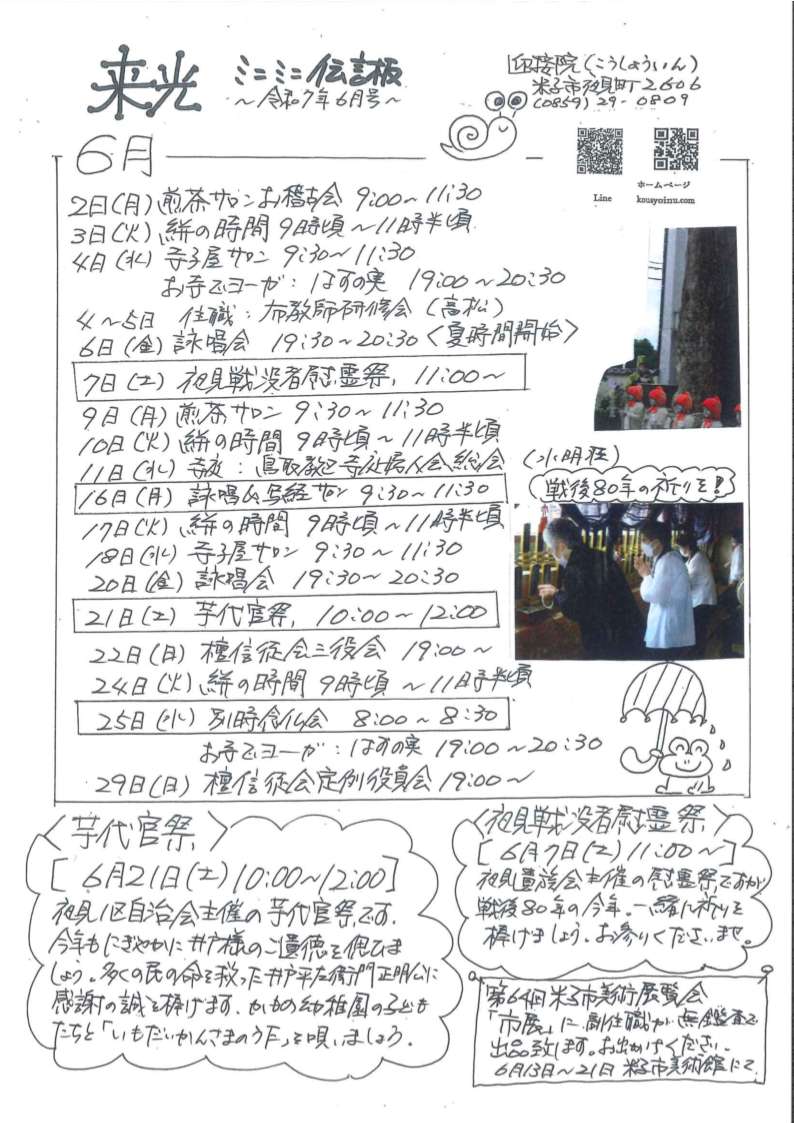 来光 ミニミニ伝言板
～令和7年6月号～
迎接院(こうしょういん)
米子市夜見町2606
(0859)29-0809
ホームページ
Line kousyoinu.com
6月
2日(月)煎茶サロンお稽古会 9:00～11:30
3日(火)絣の時間 9時頃～11時半頃
4日(水)寺子屋サロン 9:30～11:30
お寺でヨーガ:はすの実 19:00～20:30
4～5日 住職:布教師研修会(高松)
6日(金)詠唱会 19:30～20:30〈夏時間開始〉
7日(土)夜見戦没者慰霊祭, 11:00～
9日(月)煎茶サロン 9:30～11:30
10日(火)絣の時間 9時頃～11時半頃
11日(水)寺庭:鳥取教区寺庭婦人会総会(水明荘)
16日(月)詠唱&写経サロン 9:30～11:30
戦後80年の祈りを!
17日(火)絣の時間 9時頃～11時半頃
18日(水)寺子屋サロン 9:30～11:30
20日(金)詠唱会 19:30～20:30
21日(土)芋代官祭, 10:00～12:00
22日(日)檀信徒会三役会 19:00～
24日(火)絣の時間 9時頃～11時半頃
25日(水)別時念仏会 8:00～8:30
お寺でヨーガ:はすの実 19:00～20:30
29日(日)檀信徒会定例役員会 19:00～
〈芋代官祭〉
[6月21日(土)10:00～12:00]
夜見1区自治会主催の芋代官祭です.
今年もにぎやかに井戸様のご遺徳を偲びま
しょう。多くの民の命を救った井戸平左衛門正明公に
感謝の誠を捧げます.かもめ幼稚園の子ども
たちと「いもだいかんさまのうた」を唄いましょう.
〈夜見戦没者慰霊祭〉
[6月7日(土)11:00～]
夜見遺族会主催の慰霊祭ですが
戦後80年の今年。一緒に祈りを
捧げましょう.お参りくださいませ。
第64回米子市美術展覧会
「市展」に副住職が無鑑査で
出品致します。お出かけください.
6月13日～21日 米子市美術館にて.